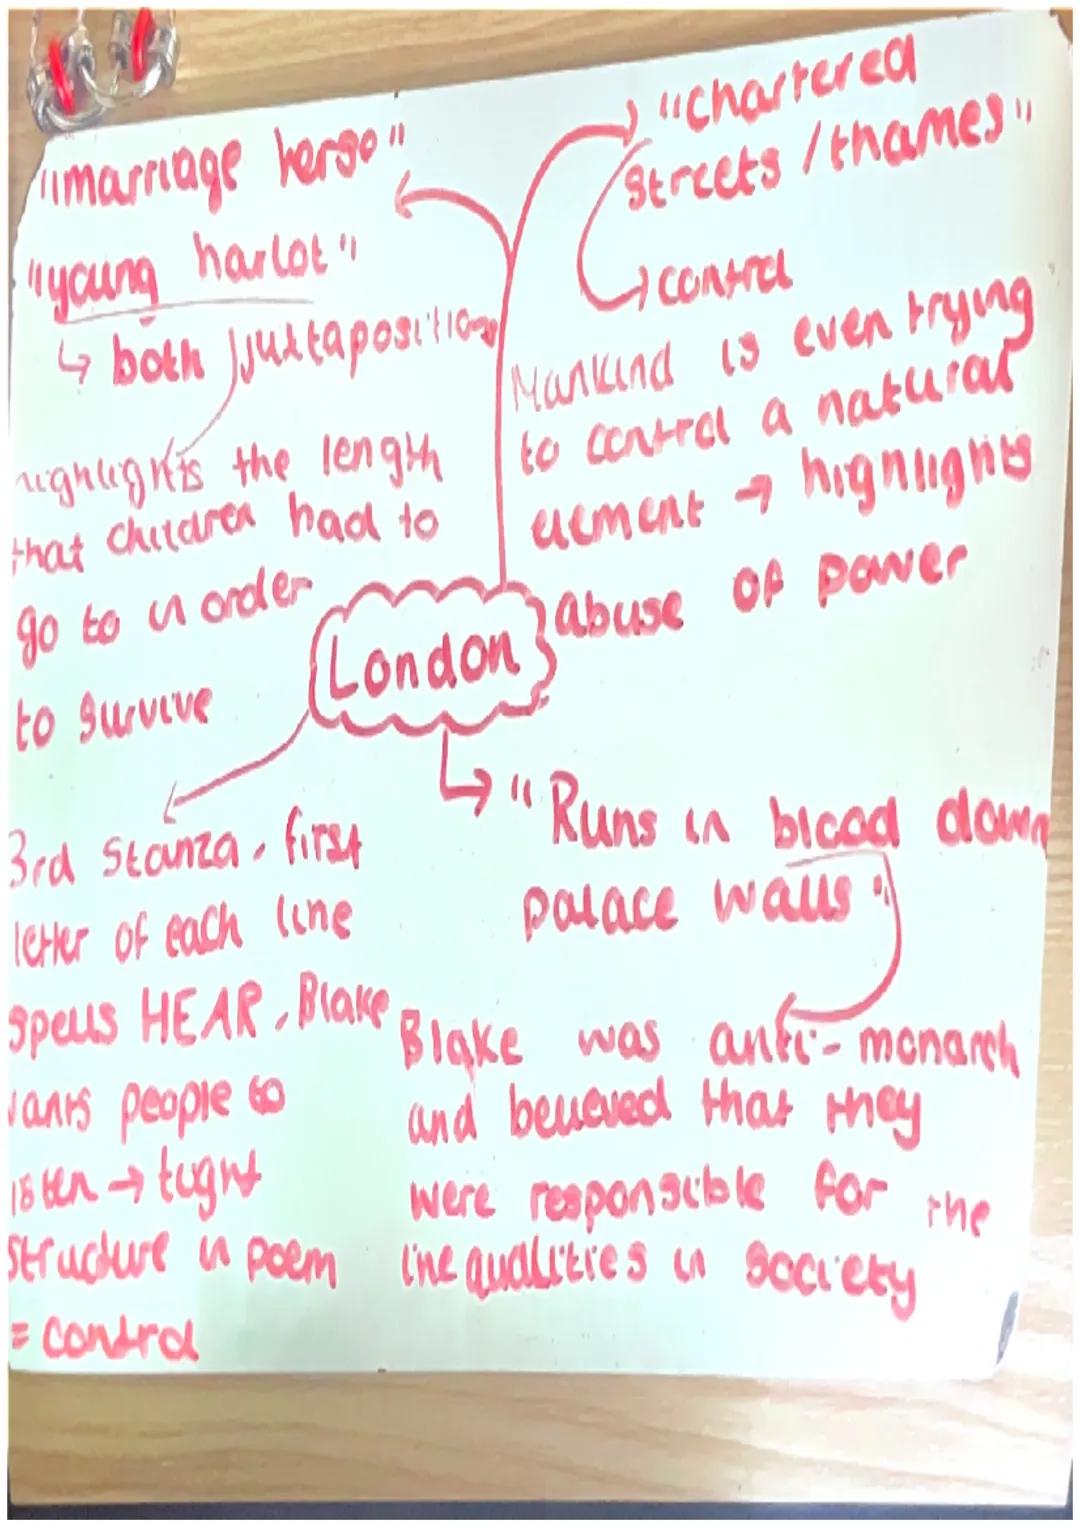 "marriage herse"
"young harlot"
↳ both juxtapositions
highlights the length
that children had to
go to in order
to survive
"chartered
streets / thames"
→ control
Mankind is even trying
to control a natural
element → highlights
abuse of power
London
3rd stanza - first
letter of each line
spells HEAR. Blake
wants people to
listen → tight
structure in poem
= control
"Runs in blood down
palace walls"
Blake was anti-monarch
and believed that they
were responsible for the
inequalities in society